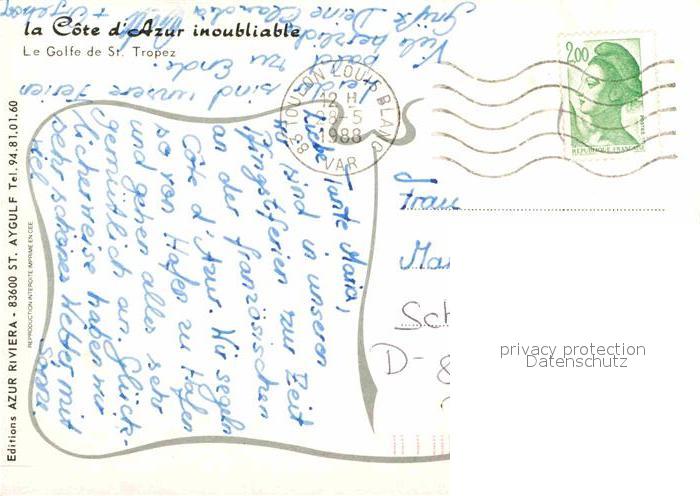 la Côte d'Azur inoubliable
Le Golfe de St. Tropez
Editions AZUR RIVIERA - 83600 ST. AYGULF Tel. 94.81.01.60
REPRODUCTION INTERDITE IMPRIME EN CEE
TOULON LOUIS BLANC
12 H
8-5
1988
83 VAR
2,00
POSTES
REPUBLIQUE FRANÇAISE
Liebe Tante Maria,
wir sind in unseren
Pfingstferien zur Zeit
an der französischen
Côte d'Azur. Wir segeln
so von Hafen zu Hafen
und gehen alles sehr
gemütlich an. Glück-
licherweise haben wir
sehr schönes Wetter, mit
viel Sonne.
sind unsere Ferien
leider bald zu Ende.
Viele herzliche
Grüße Deine Claudia
Frau
Mar
Sch
D-8
privacy protection
Datenschutz